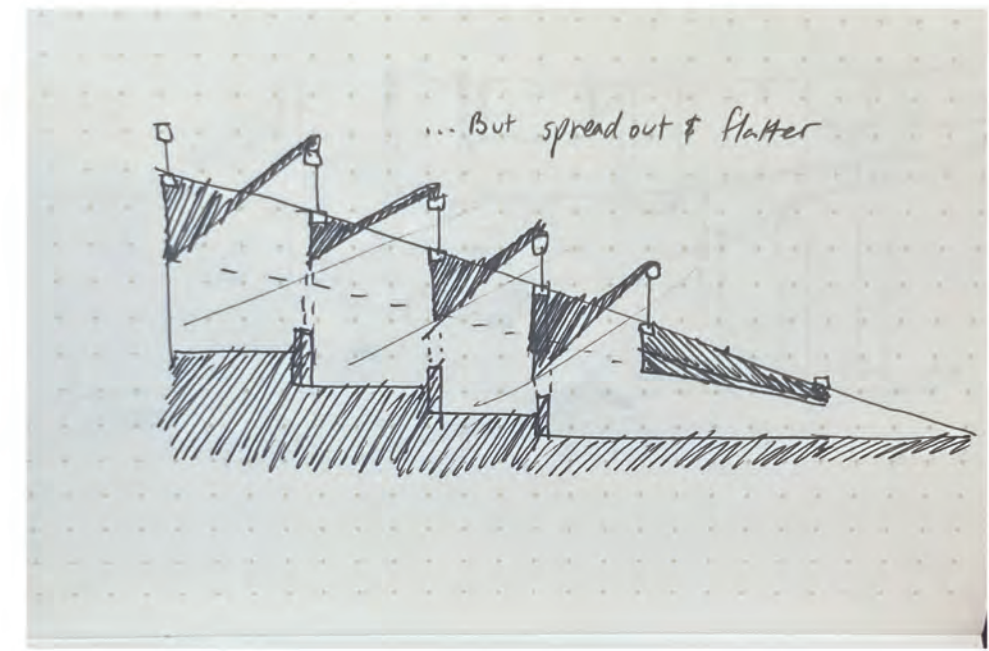 ... But spread out & flatter